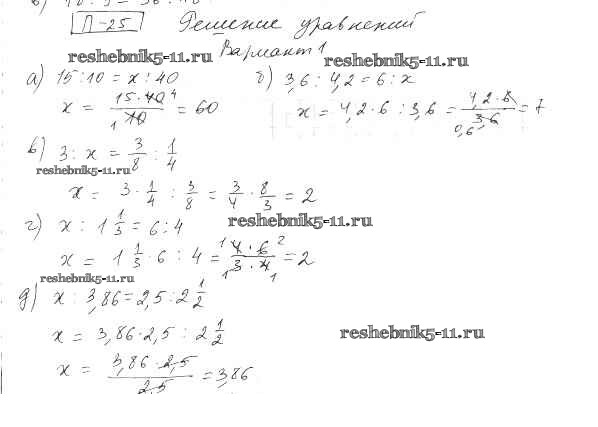 П-25 Решение уравнений
Вариант 1
reshebnik5-11.ru reshebnik5-11.ru
а) 15 : 10 = x : 40 б) 3,6 : 4,2 = 6 : x
x = 15·40 4 / 1 10 = 60 x = 4,2·6 : 3,6 = 4,2·6 / 0,6 3,6 = 7
в) 3 : x = 3/8 : 1/4
reshebnik5-11.ru
x = 3 · 1/4 : 3/8 = 3/4 · 8/3 = 2
г) x : 1 1/3 = 6 : 4 reshebnik5-11.ru
x = 1 1/3 · 6 : 4 = 1 4·6 2 / 1 3·4 1 = 2
reshebnik5-11.ru
д) x : 3,86 = 2,5 : 2 1/2
x = 3,86·2,5 : 2 1/2 reshebnik5-11.ru
x = 3,86·2,5 / 2,5 = 3,86